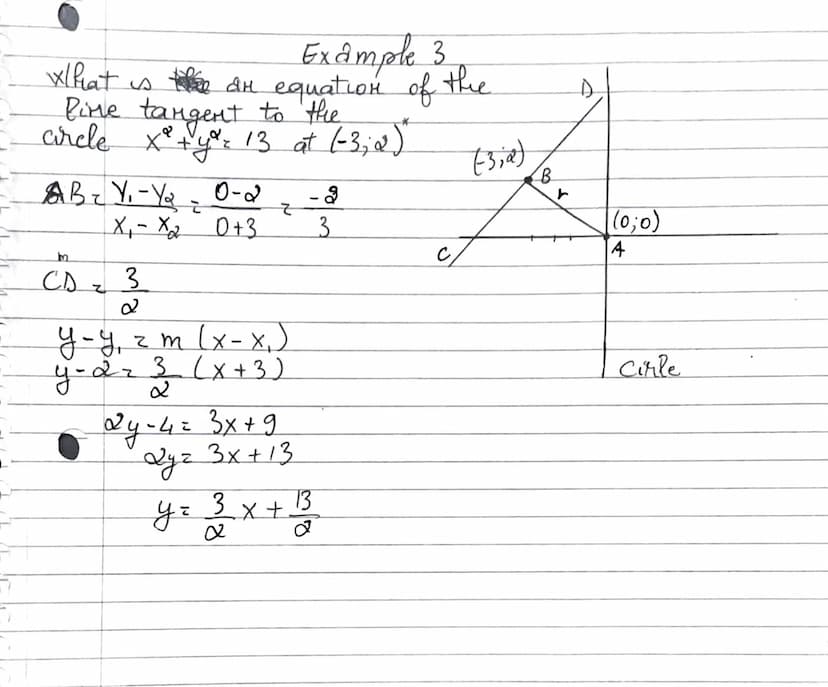 Example 3
What is an equation of the
line tangent to the
circle x² + y² = 13 at (-3;2)
AB = Y₁-Y₂ / X₁-X₂ = 0-2 / 0+3 = -2 / 3
m
CD = 3/2
y-y₁ = m (x-x₁)
y-2 = 3/2 (x+3)
2y-4 = 3x+9
2y = 3x+13
y = 3/2 x + 13/2
D
(-3;2)
B
r
(0;0)
A
C
Cirle